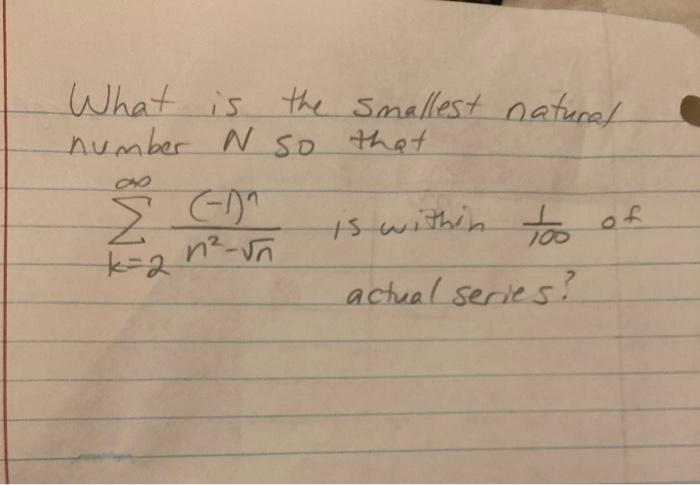 What is the smallest natural
number N so that
∞
Σ (-1)ⁿ / n²-√n is within 1/100 of
k=2
actual series?